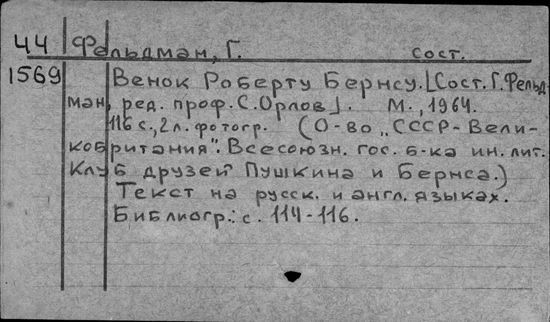 44 Фельдман, Г. сост.
1569 Венок Роберту Бернсу. [Сост. Г. Фельд-
ман, ред. проф. С. Орлов]. М., 1964.
116 с., 2 л. фотогр. (О-во „СССР-Вели-
кобритания". Всесоюзн. гос. б-ка ин. лит.
Клуб друзей Пушкина и Бернса.)
Текст на русск. и англ. языках.
Библиогр.: с. 114-116.